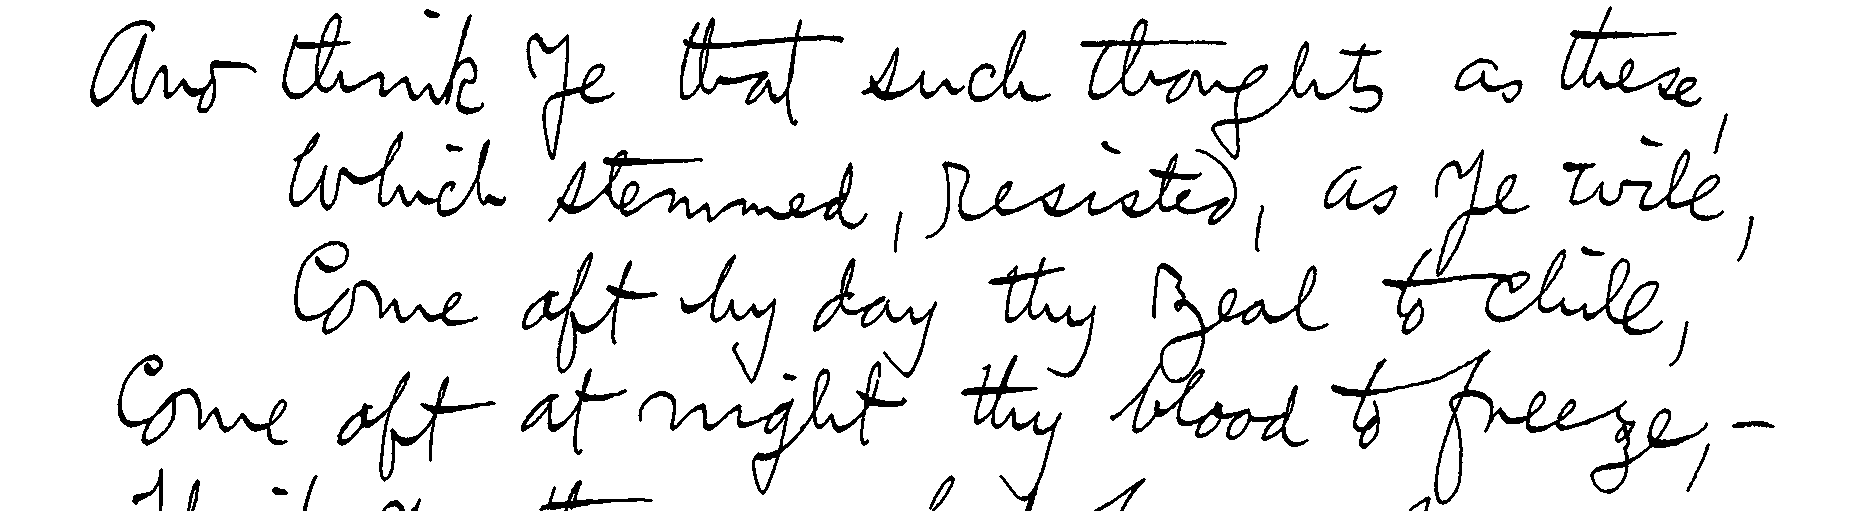 And think Ye that such thoughts as these,
Which stemmed, resisted, as Ye will,
Come oft by day thy zeal to chill,
Come oft at night thy blood to freeze,-